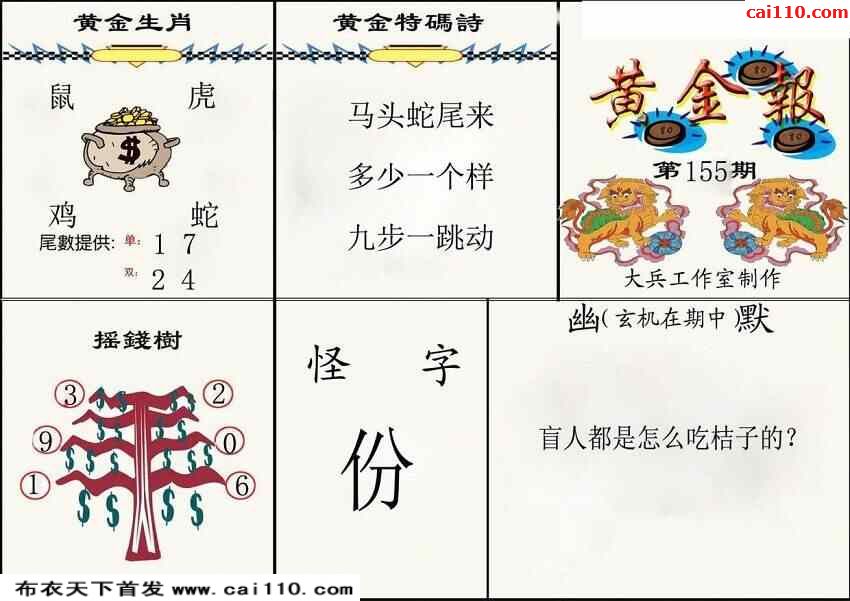 cai110.com
黄金生肖
鼠 虎
$
鸡 蛇
尾數提供: 单: 1 7
双: 2 4
黄金特碼詩
马头蛇尾来
多少一个样
九步一跳动
黄金報
80
80
80
第155期
大兵工作室制作
摇錢樹
3 2
9 0
1 6
$ $ $ $
$ $ $ $ $ $
$ $ $ $
怪 字
份
幽(玄机在期中)默
盲人都是怎么吃桔子的?
布衣天下首发 www.cai110.com